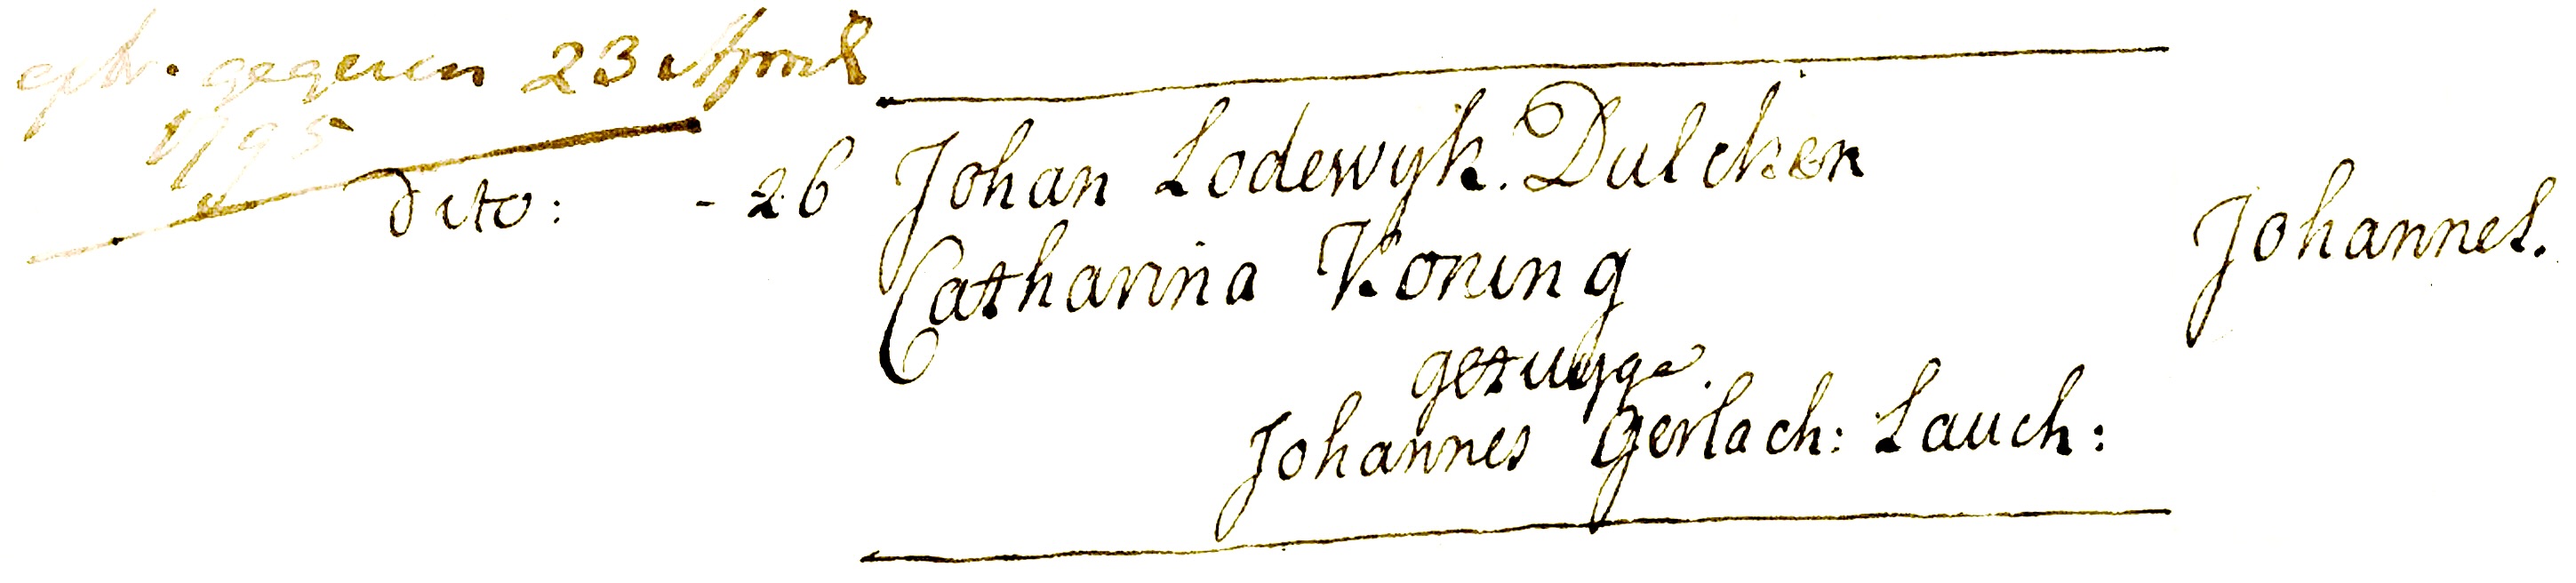 extr. gegeven 23 April
1795
dito: - 26 Johan Lodewyk. Dulcken
Catharina Koning
Johannes.
getuyge.
Johannes Gerlach: Lauch: